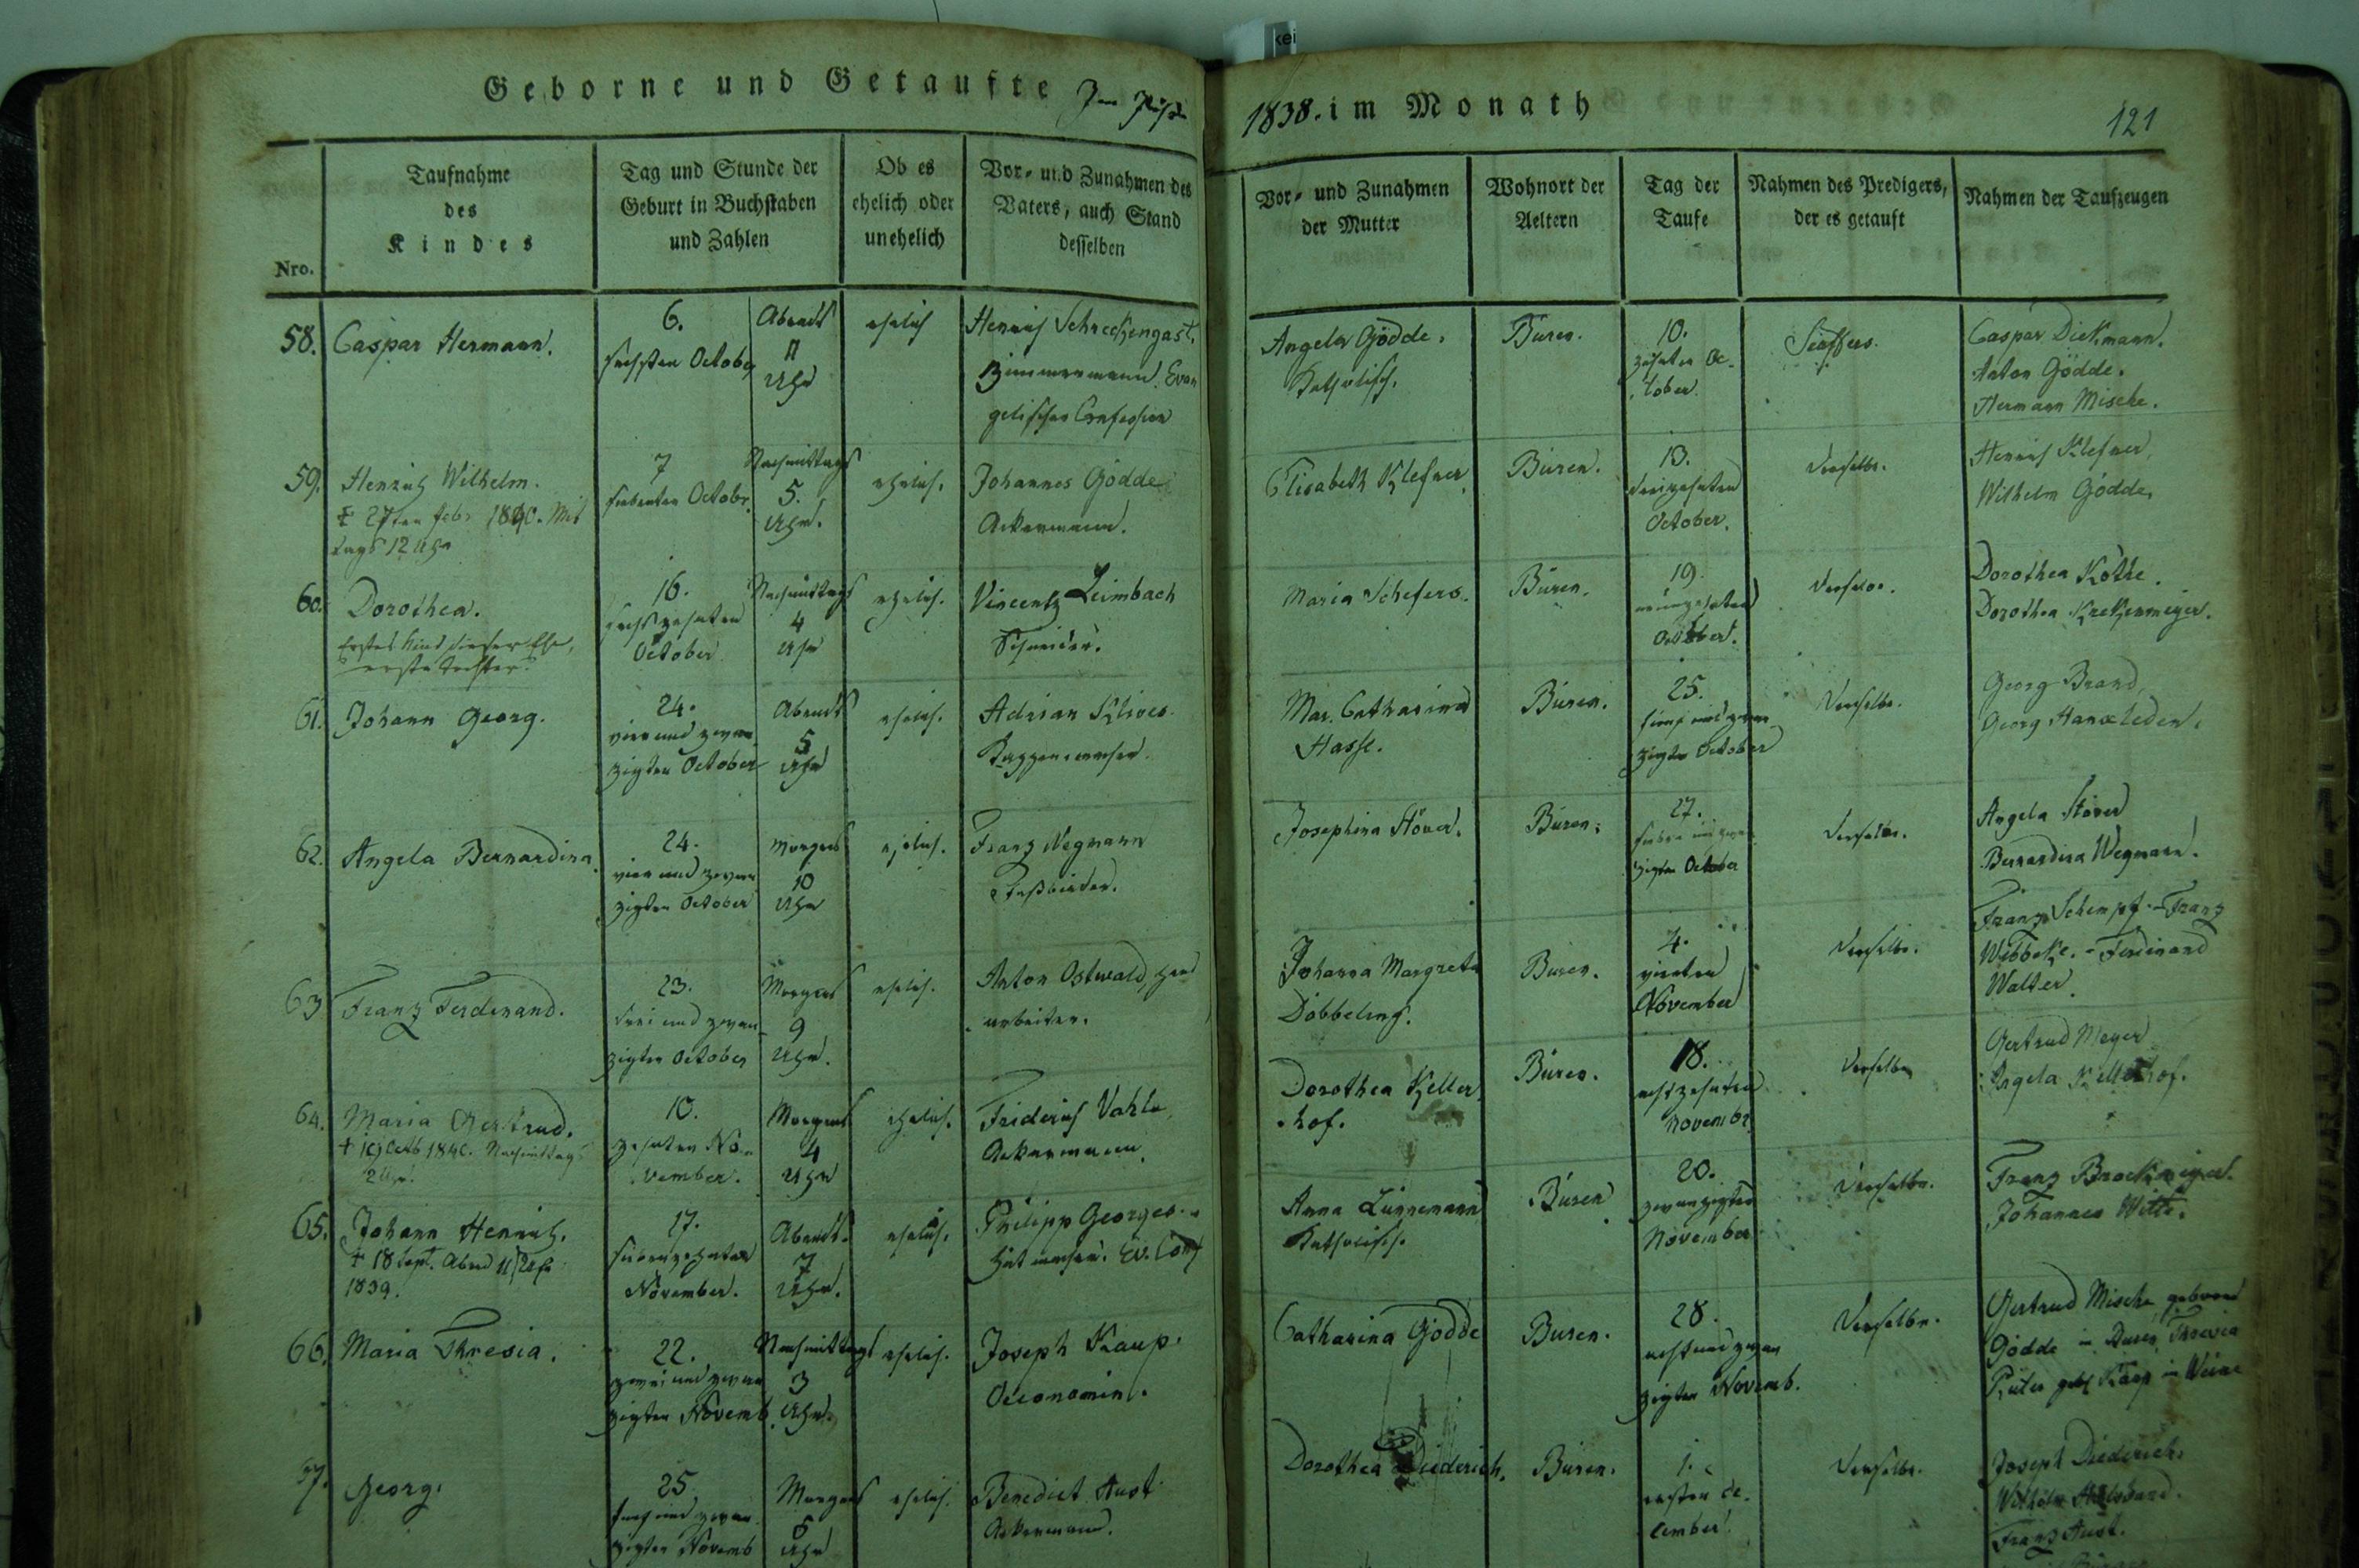 kei
Geborne und Getaufte Im Jahr
1838. im Monath
121
Nro.
Taufnahme
des
Kindes
Tag und Stunde der
Geburt in Buchstaben
und Zahlen
Ob es
ehelich oder
unehelich
Vor- und Zunahmen des
Vaters, auch Stand
desselben
Vor- und Zunahmen
der Mutter
Wohnort der
Aeltern
Tag der
Taufe
Nahmen des Predigers,
der es getauft
Nahmen der Taufzeugen
58.
Caspar Hermann.
6.
sechsten October
Abends
11
Uhr
ehelich
Henrich Schreckengast.
Zimmermann. Evan
gelischer Confession
Angela Gödde.
Katholisch.
Büren.
10.
zehnten Oc-
tober.
Caspar Diekmann.
Anton Gödde.
Hermann Mische.
59.
Henrich Wilhelm.
† 27ten Febr 1840. Mit
tags 12 Uhr
7
siebenten Octobr.
Nachmittags
5.
Uhr.
ehelich.
Johannes Gödde
Ackermann.
Elisabeth Klefner
Büren.
13.
dreizehnten
October.
derselbe.
Henrich Klefner,
Wilhelm Gödde,
60.
Dorothea.
Erstes Kind dieser Ehe,
erste Tochter.
16.
sechszehnten
October
Nachmittags
4
Uhr
ehelich.
Vincentz Leimbach
Schneider.
Maria Schefers.
Büren.
19.
neunzehnten
October.
derselbe.
Dorothea Köthe.
Dorothea
61.
Johann Georg.
24.
vier und zwan
zigten October
Abends
5
Uhr
ehelich.
Adrian
Kappenmacher.
Mar. Catharina
Hasse.
Büren.
25.
fünf und zwan
zigten October
derselbe.
Georg Brand,
Georg Hanxleden.
62.
Angela Bernardina
24.
vier und zwan
zigten October
Morgens
10
Uhr
ehelich.
Franz Wegmann
Faßbinder.
Josephina Stöver.
Büren.
27.
sieben und zwan
zigten October
derselbe.
Angela Stöver
Bernardina Wegmann.
63
Franz Ferdinand.
23.
drei und zwan
zigten October
Morgens
9
Uhr.
ehelich.
Anton Ostwald, Hand
arbeiter.
Johanna Margreta
Döbbeling.
Büren.
4.
vierten
November
derselbe.
Franz Schempf. - Franz
Wibbeke. - Ferdinand
Walter.
64.
Maria Gertrud.
† 19 Octb 1840. Nachmittags
2 Uhr.
10.
zehnten No-
vember.
Morgens
4
Uhr
ehelich.
Friderich Vahle,
Ackermann.
Dorothea Keller
hof.
Büren.
18.
achtzehnten
Novembr.
derselbe
Gertrud Meyer
Angela Kellerhof.
65.
Johann Henrich.
† 18 Sept. Abend 11 Uhr
1839.
17.
siebenzehnten
November.
Abends.
7
Uhr.
ehelich.
Philipp Georges.
Hutmacher. Ev. Conf
Anna Linnemann
Katholisch.
Büren
20.
zwanzigten
November
derselbe.
Franz Brockmeyer.
Johannes Witte.
66.
Maria Thresia.
22.
zwei und zwan
zigten Novemb.
Nachmittags
3
Uhr.
ehelich.
Joseph Kaup.
Catharina Gödde
Büren.
28.
acht und zwan
zigten Novemb.
derselbe.
Gertrud Mische, geborne
Gödde in Büren, Thresia
geb Kaup in Weine
Georg.
25
fünf und zwan
zigten Novemb
Morgens
Uhr
ehelich.
Benedict Aust
Ackermann.
Dorothea Diederich.
Büren.
1.
ersten De-
cember.
derselbe.
Joseph Diederich.
Wilhelm
Franz Aust.